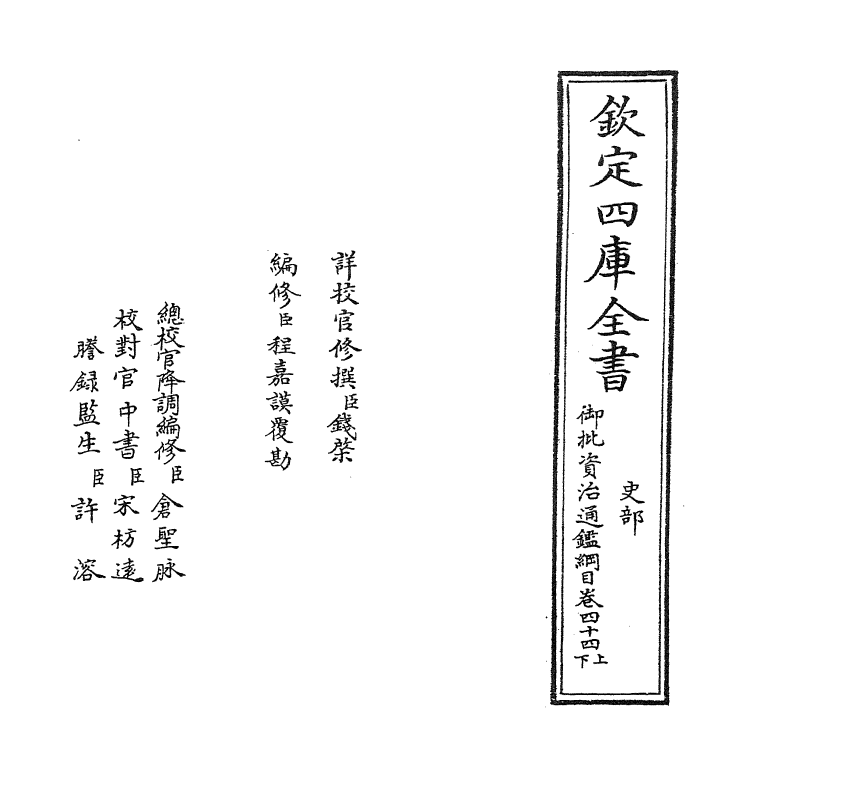 欽定四庫全書
史部
御批資治通鑑綱目卷四十四上下
詳校官修撰臣錢棨
編修臣程嘉謨覆勘
總校官降調編修臣倉聖脉
校對官中書臣宋枋遠
謄録監生臣許溶